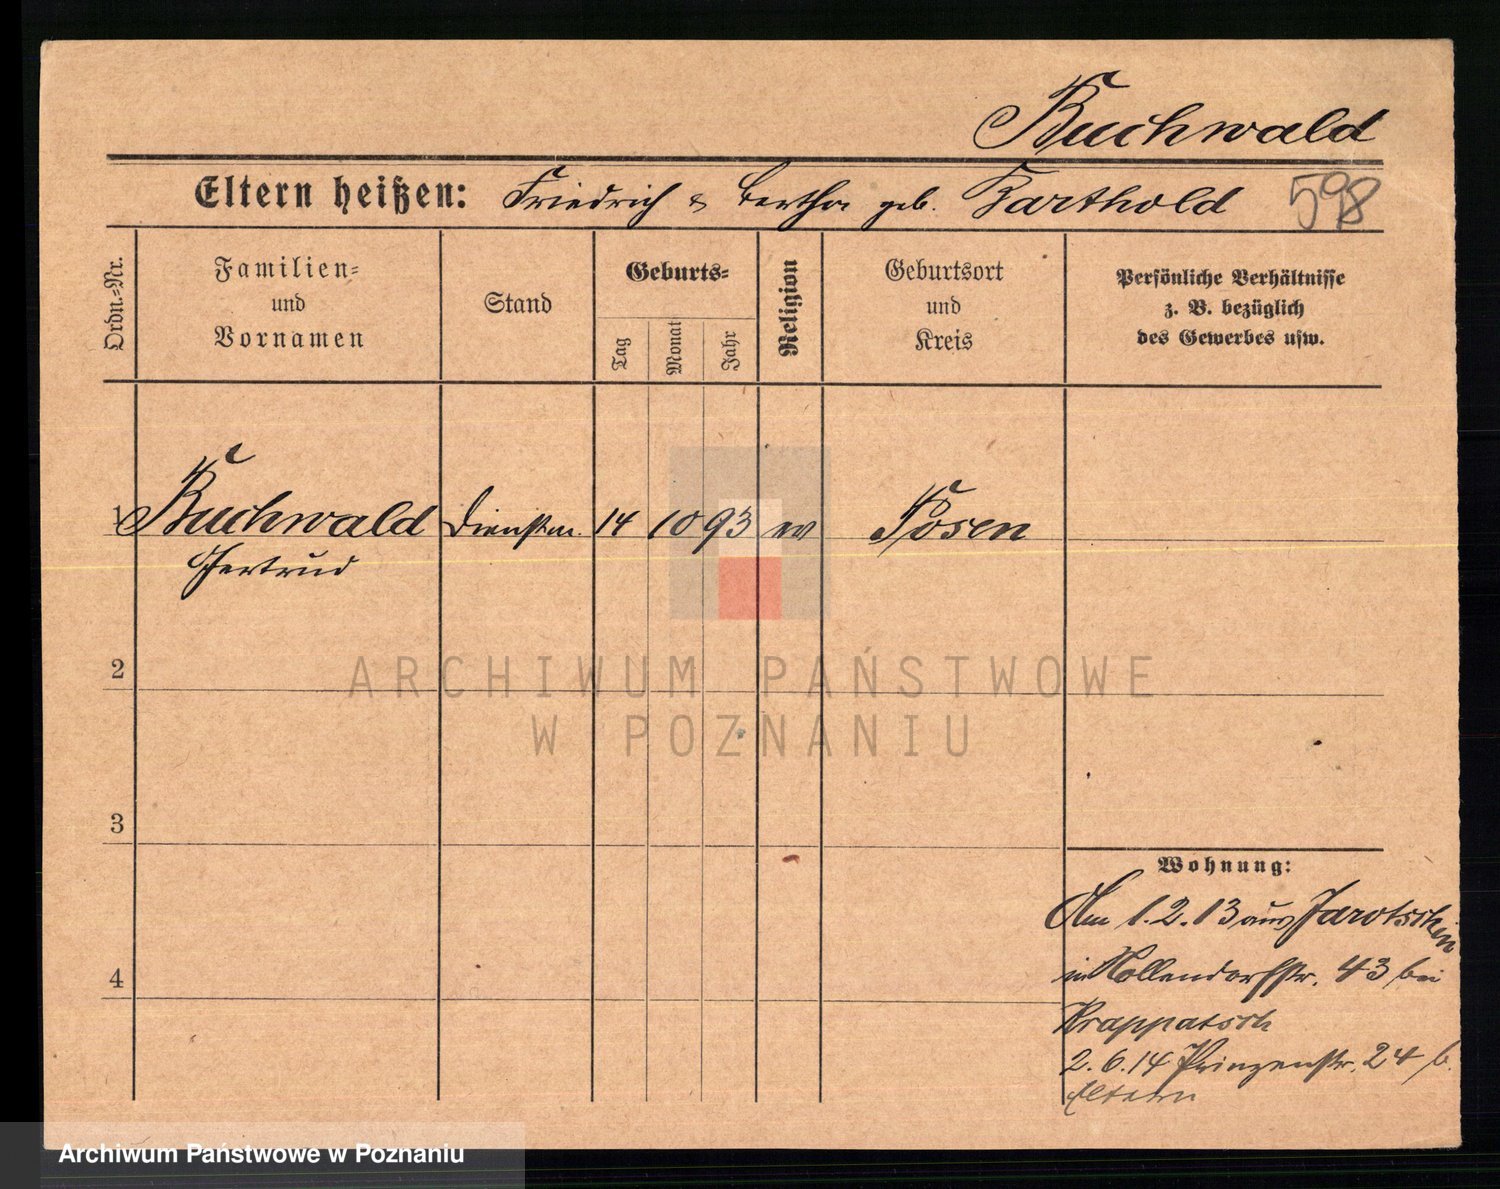 Buchwald
Eltern heißen: Friedrich & Bertha geb. Barthold 598
Ordn.-Nr.
Familien-
und
Vornamen
Stand
Geburts-
Tag
Monat
Jahr
Religion
Geburtsort
und
Kreis
Persönliche Verhältnisse
z. B. bezüglich
des Gewerbes usw.
1 Buchwald Dienstm. 14 10 93 ev Posen
Gertrud
ARCHIWUM PAŃSTWOWE
W POZNANIU
2
3
4
Wohnung:
Am 1.2.13 aus Jarotschin
in Nollendorfstr. 43 bei
Krappatsch
2.6.14 Prinzenstr. 24 b.
Eltern
Archiwum Państwowe w Poznaniu